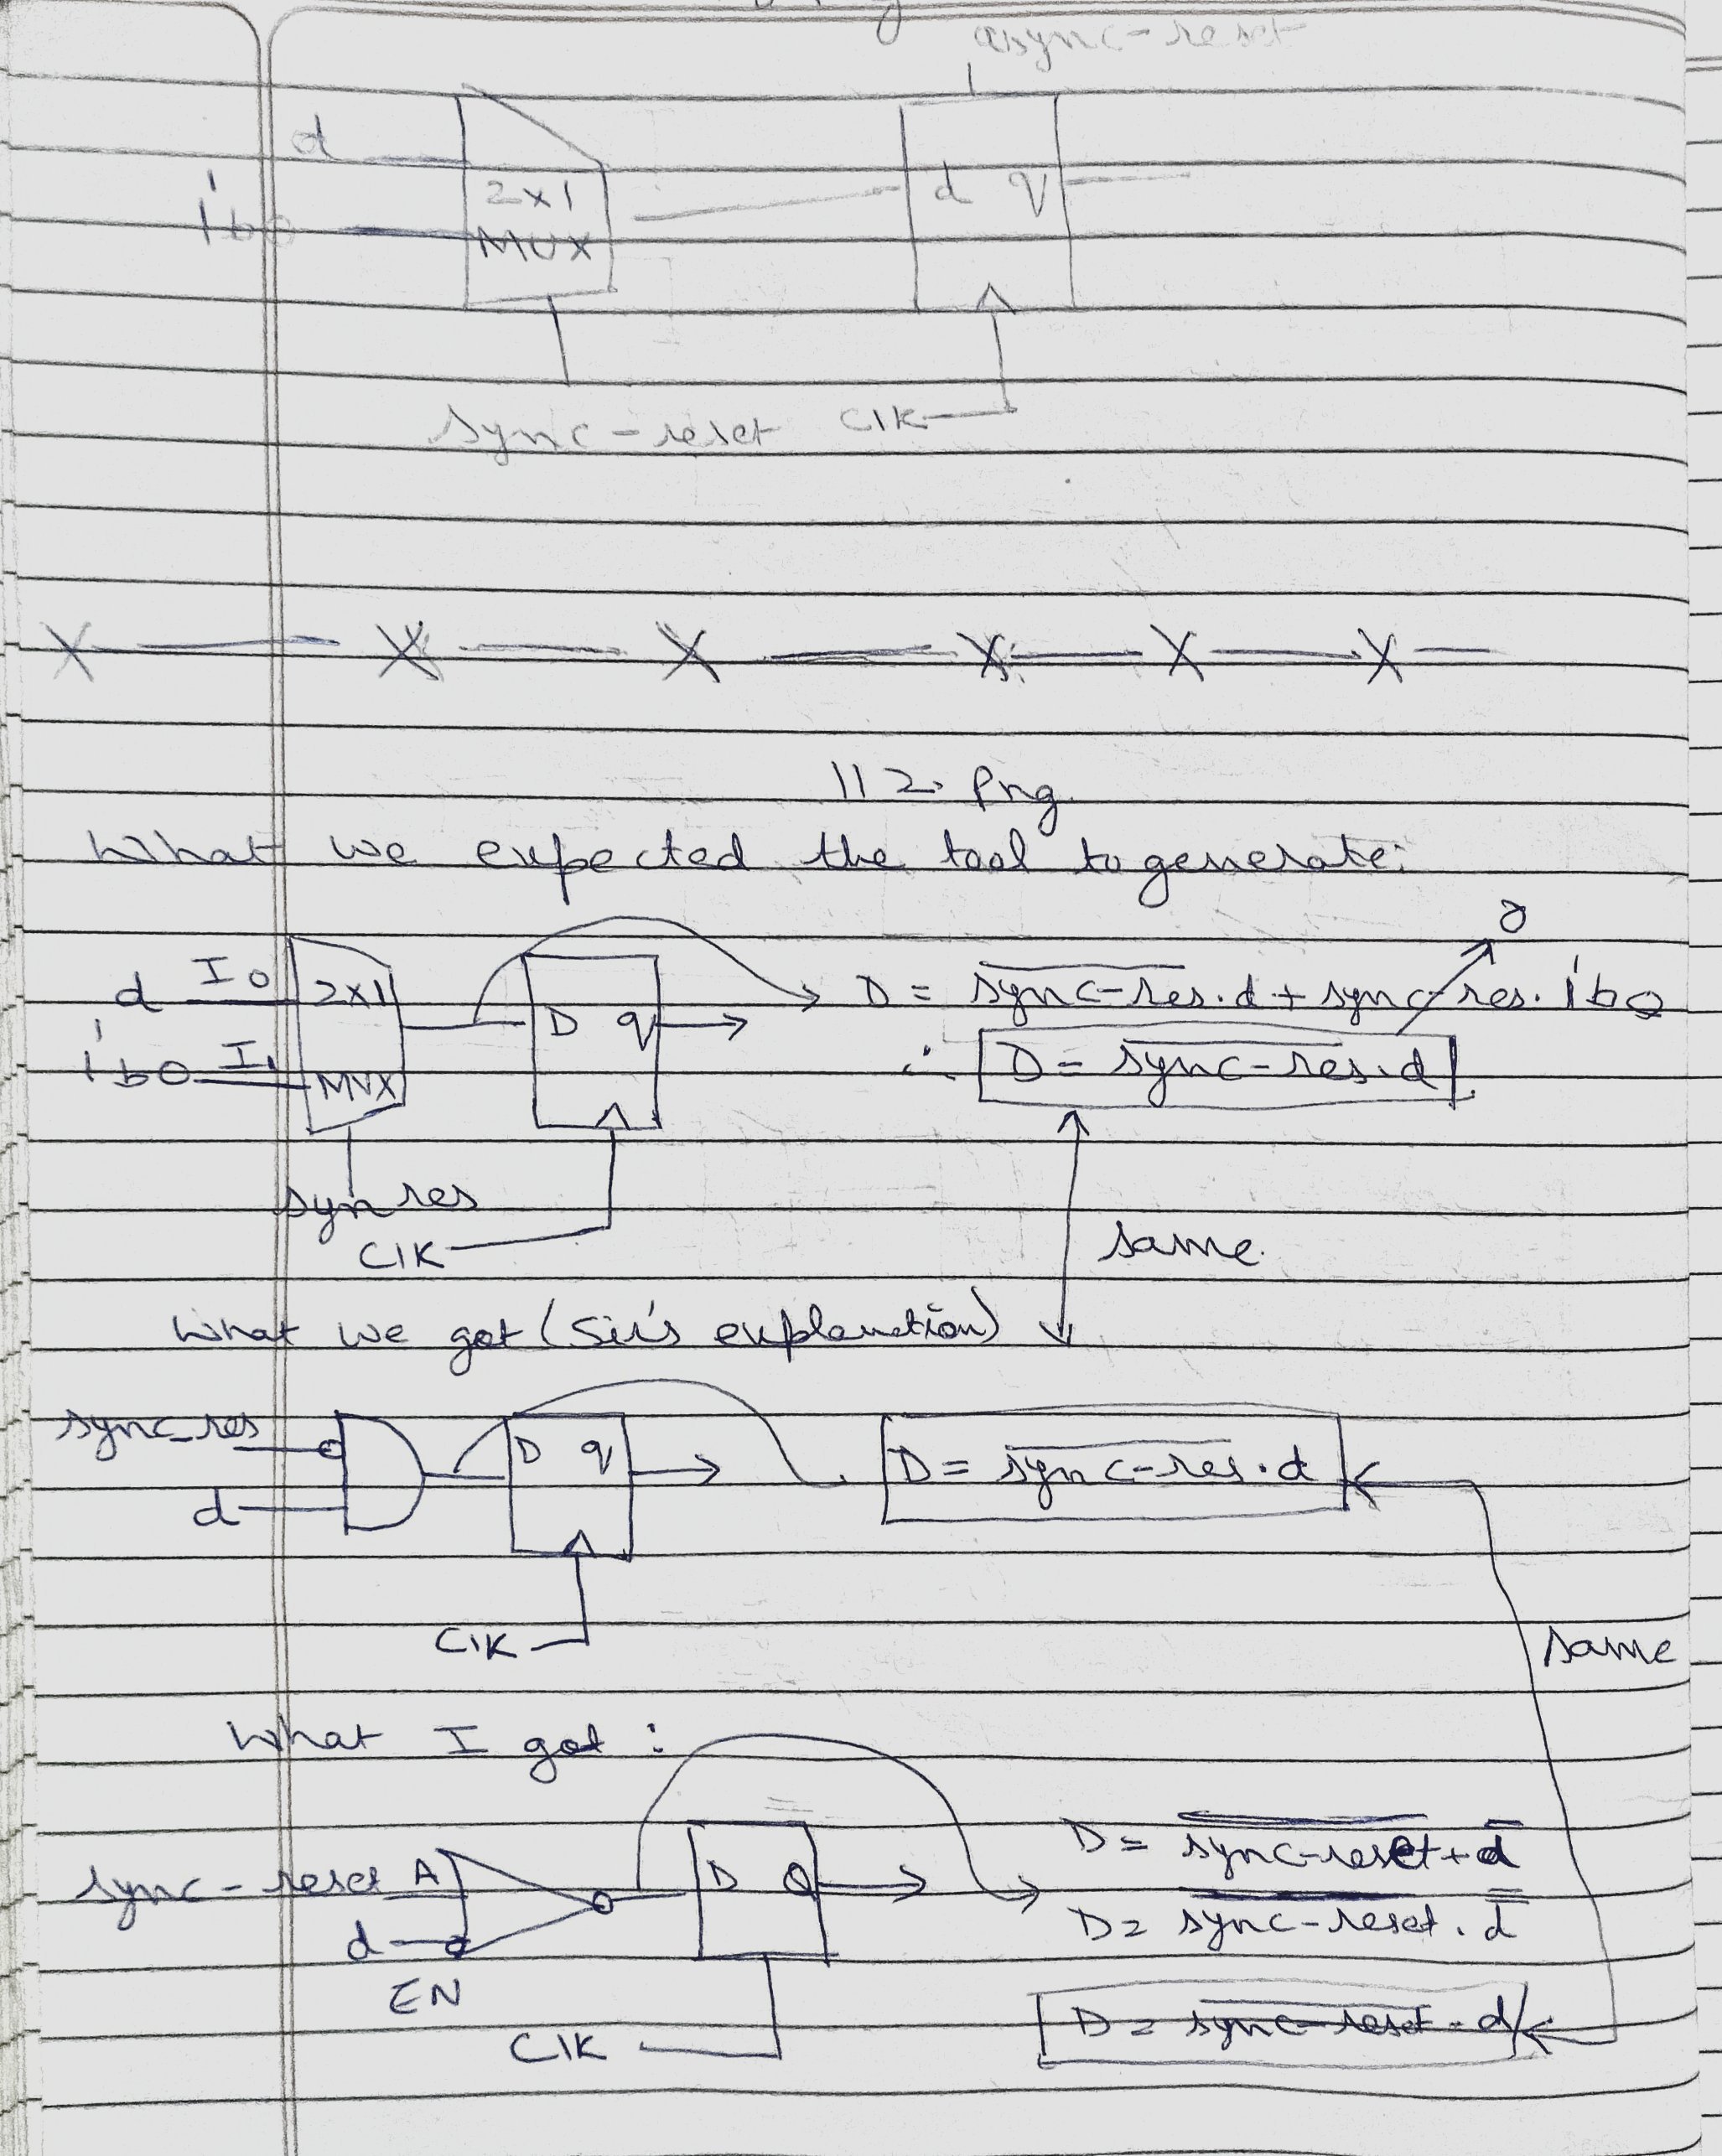 async-reset
d
1'b0
2x1
MUX
d q
sync-reset
Clk
X X X X X X
112.png
What we expected the tool to generate:
d I0
1'b0 I1
2x1
MUX
D q
syn res
Clk
0
D = \overline{sync-res}.d + sync-res.1'b0
∴ D = \overline{sync-res}.d
same.
What we got (Sir's explanation)
sync_res
d
D q
Clk
D = \overline{sync-res}.d
same
What I got :
sync-reset A
d
EN
D Q
Clk
D = \overline{sync-reset + \overline{d}}
D = \overline{sync-reset}.\overline{\overline{d}}
D = \overline{sync-reset}.d